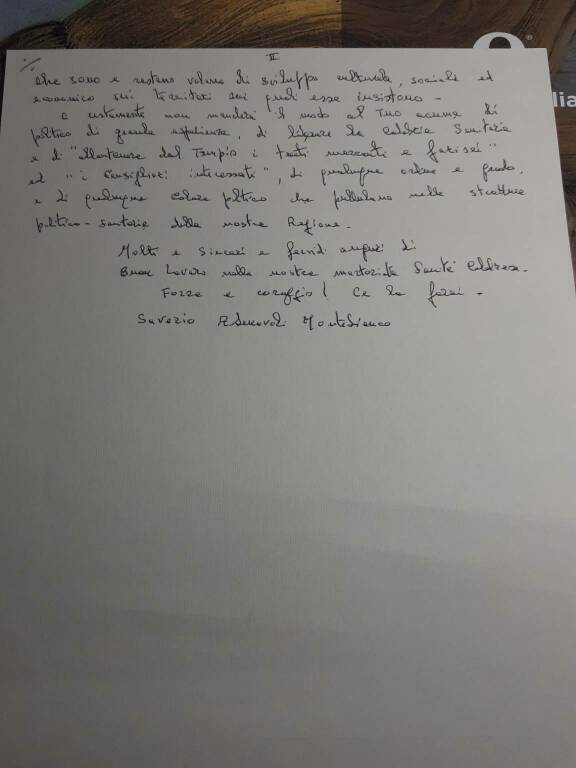 II
che sono e restano volano di sviluppo culturale, sociale ed
economico sui territori sui quali esse insistono -
E certamente non mancherà il modo al Tuo acume di
politico di grande esperienza, di liberare la Calabria Sanitaria
e di "allontanare dal Tempio i tanti mercanti e farisei"
ed "i Consiglieri interessati", di qualunque ordine e grado,
e di qualunque colore politico che pullulano nelle strutture
politico-sanitarie della nostra Regione.
Molti e Sinceri e fervidi auguri di
Buon Lavoro nella nostra martoriata Sanità Calabrese.
Forza e coraggio! Ce la farai -
Saverio Montebianco
lia